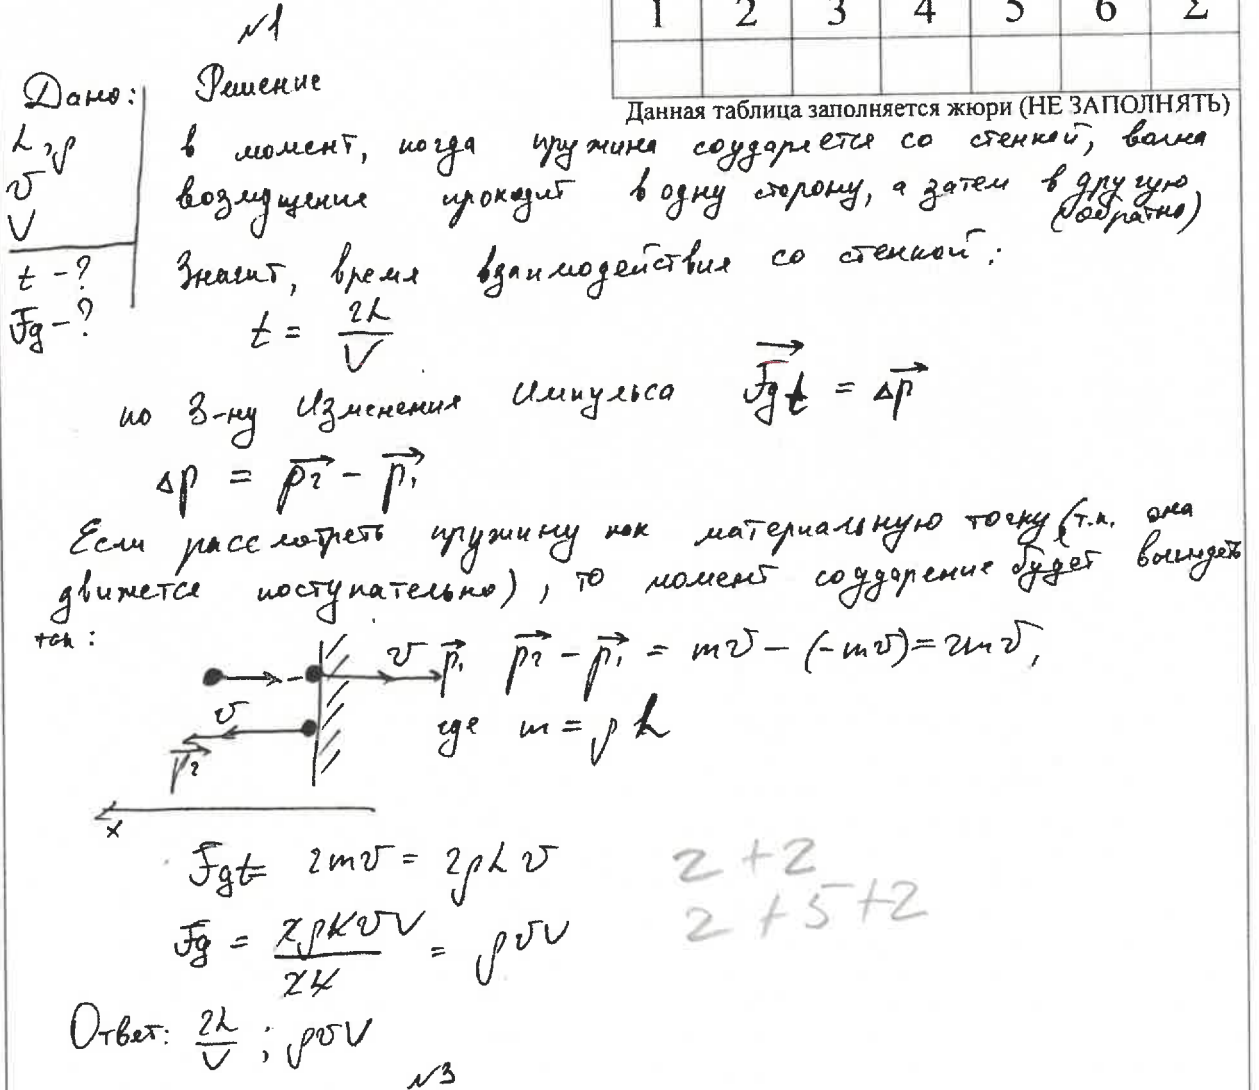 №1
1 2 3 4 5 6 Σ
Данная таблица заполняется жюри (НЕ ЗАПОЛНЯТЬ)
Дано: Решение
L, ρ
v
V
t - ?
Fg - ?
в момент, когда пружина соударяется со стенкой, волна
возмущение проходит в одну сторону, а затем в другую
(обратно)
Значит, время взаимодействия со стенкой:
t = 2L/V
по З-ну Изменения Импульса Fg t = Δp
Δp = p2 - p1
Если рассмотреть пружину как материальную точку (т.к. она
движется поступательно), то момент соударение будет выглядеть
так:
v p1 p2 - p1 = mv - (-mv) = 2mv,
v
p2
где m = ρL
x
Fgt = 2mv = 2ρLv
2 + 2
2 + 5 + 2
Fg = 2ρLvV/2L = ρvV
Ответ: 2L/V ; ρvV
№3